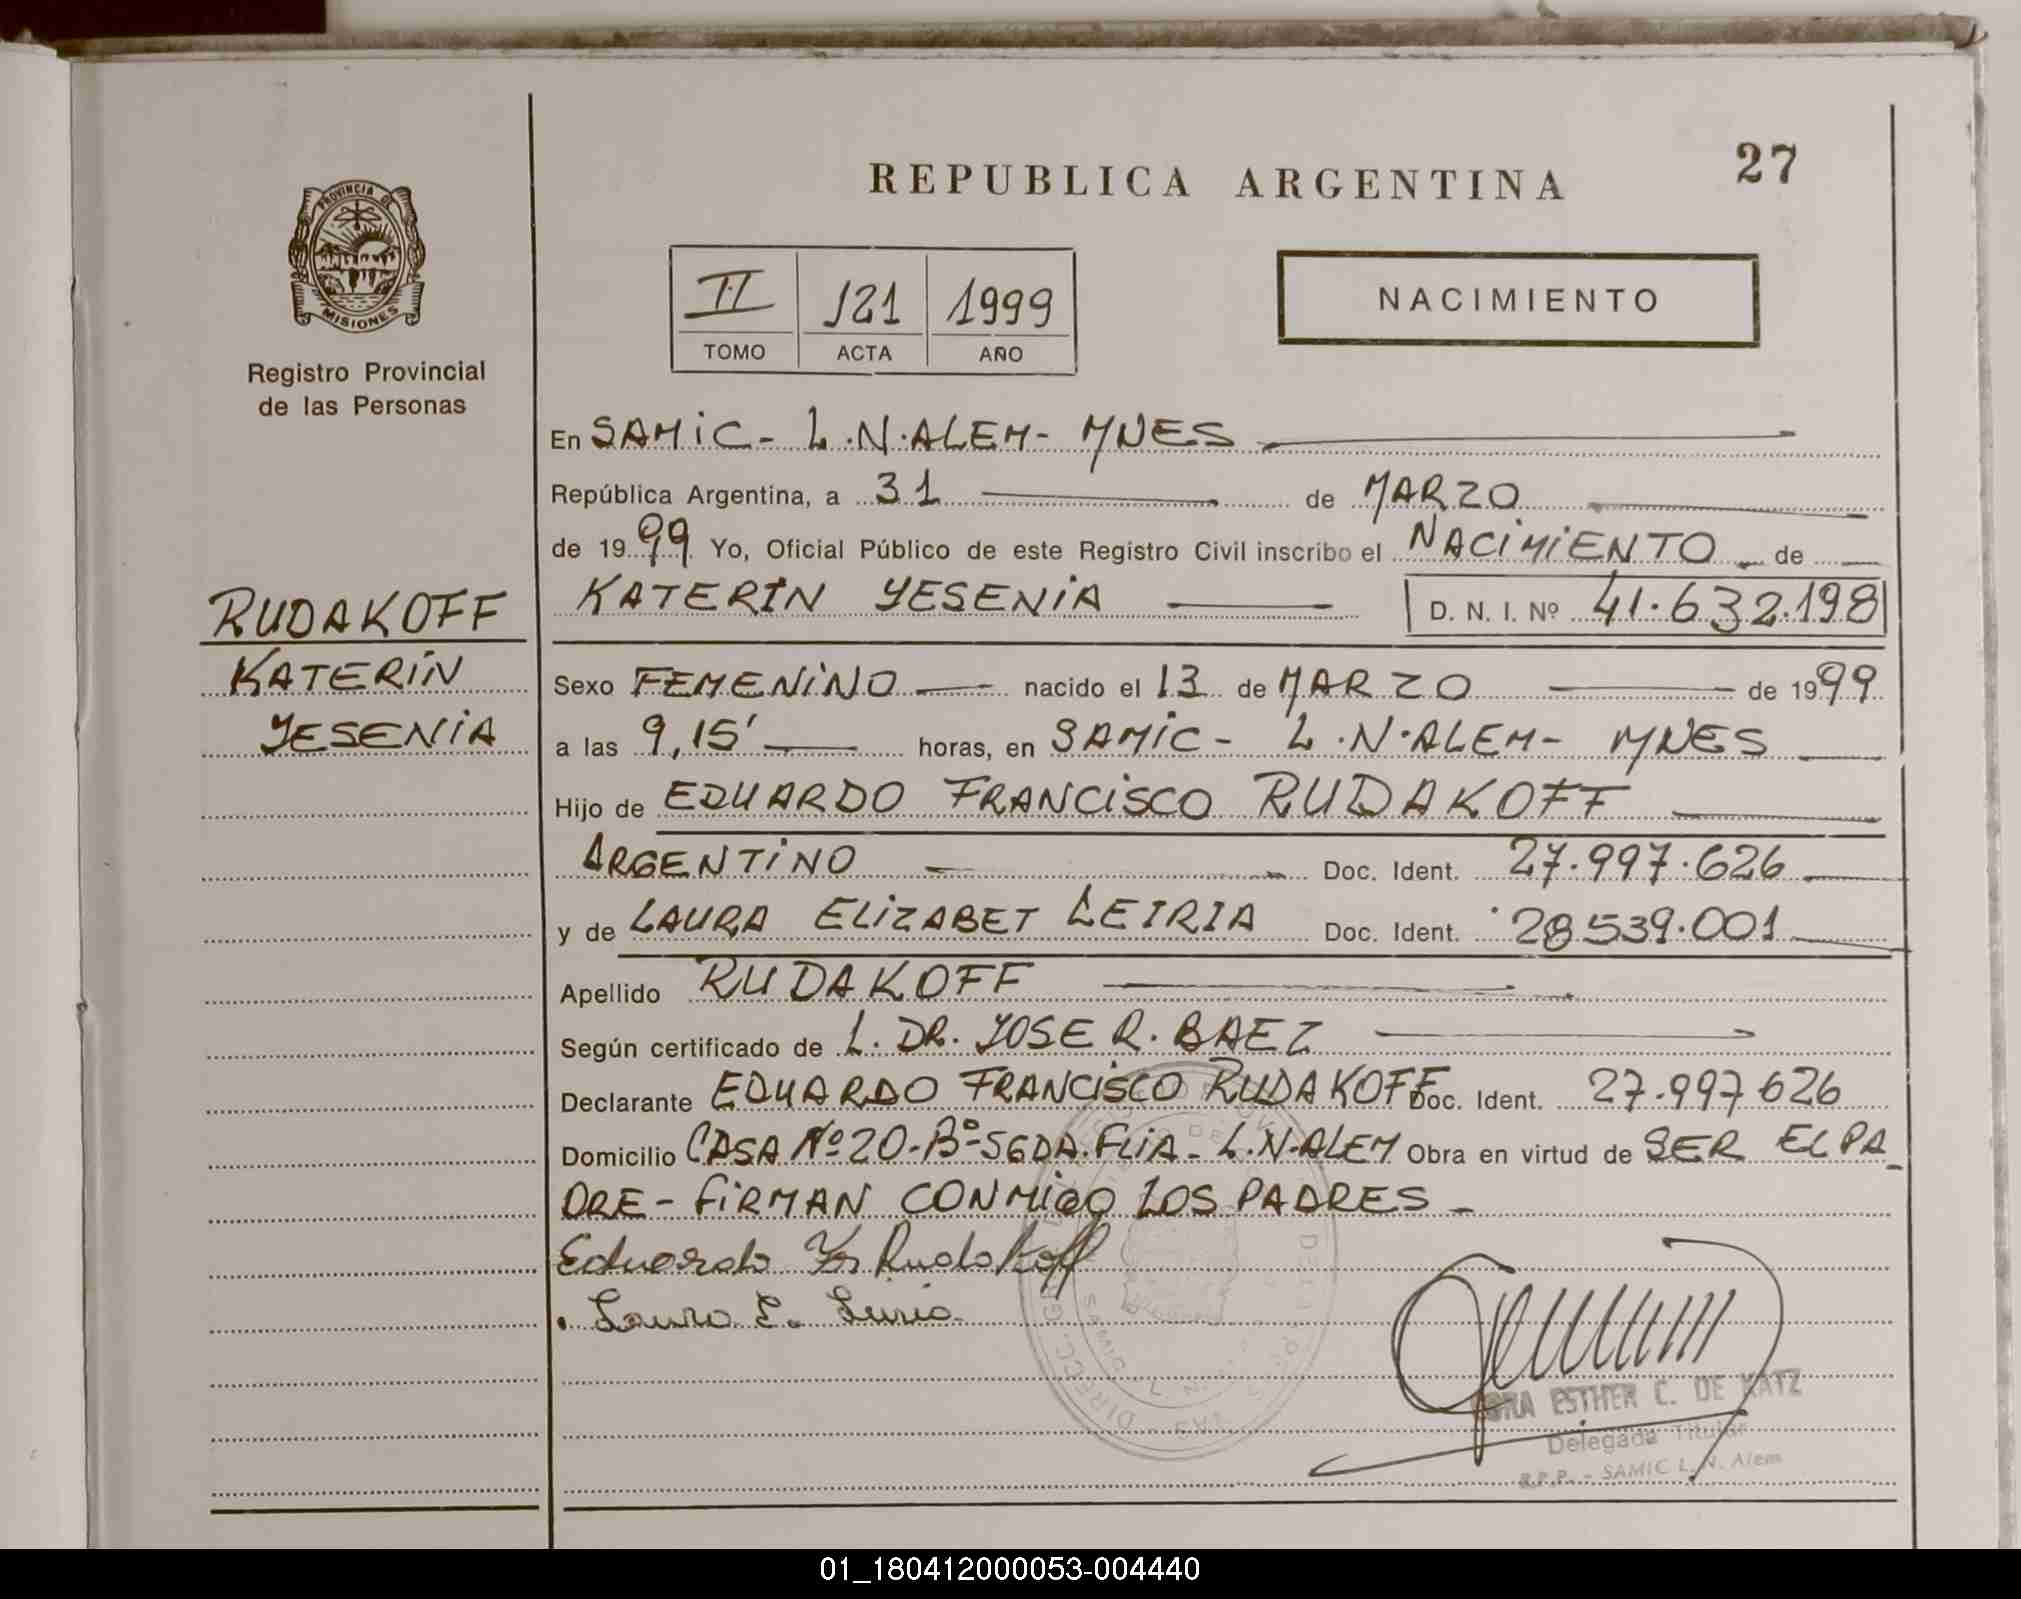 REPUBLICA ARGENTINA
27
PROVINCIA DE
MISIONES
Registro Provincial
de las Personas
II 121 1999
TOMO ACTA AÑO
NACIMIENTO
En SAMiC - L.N. ALEM - MNES
República Argentina, a 31 de MARZO
de 1999 Yo, Oficial Público de este Registro Civil inscribo el NACiMiENTO de
KATERIN YESENiA D. N. I. Nº 41.632.198
RUDAKOFF
KATERiN
YESENiA
Sexo FEMENiNO nacido el 13 de MARZO de 1999
a las 9,15' horas, en SAMiC - L.N. ALEM - MNES
Hijo de EDUARDO FRANCiSCO RUDAKOFF
ARGENTiNO Doc. Ident. 27.997.626
y de LAURA ELiZABET LEIRIA Doc. Ident. 28539.001
Apellido RUDAKOFF
Según certificado de L. DR. JOSE R. BAEZ
Declarante EDUARDO FRANCiSCO RUDAKOFF Doc. Ident. 27.997626
Domicilio CASA Nº 20-Bº-SGDA. FLiA - L.N. ALEM Obra en virtud de SER EL PA
DRE - FiRMAN CONMiGO LOS PADRES -
Eduardo Rudakoff
Laura E. Leiria
ESTHER C. DE KATZ
Delegada Titular
R.P.P. - SAMIC L. N. Alem
01_180412000053-004440